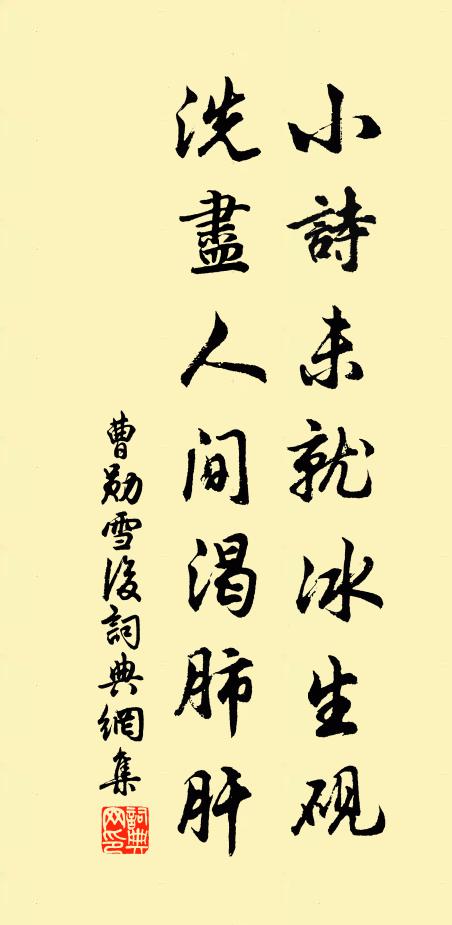 小詩未就冰生硯
洗盡人間渴肺肝
曹勛雪後詞典網集
詞典網印